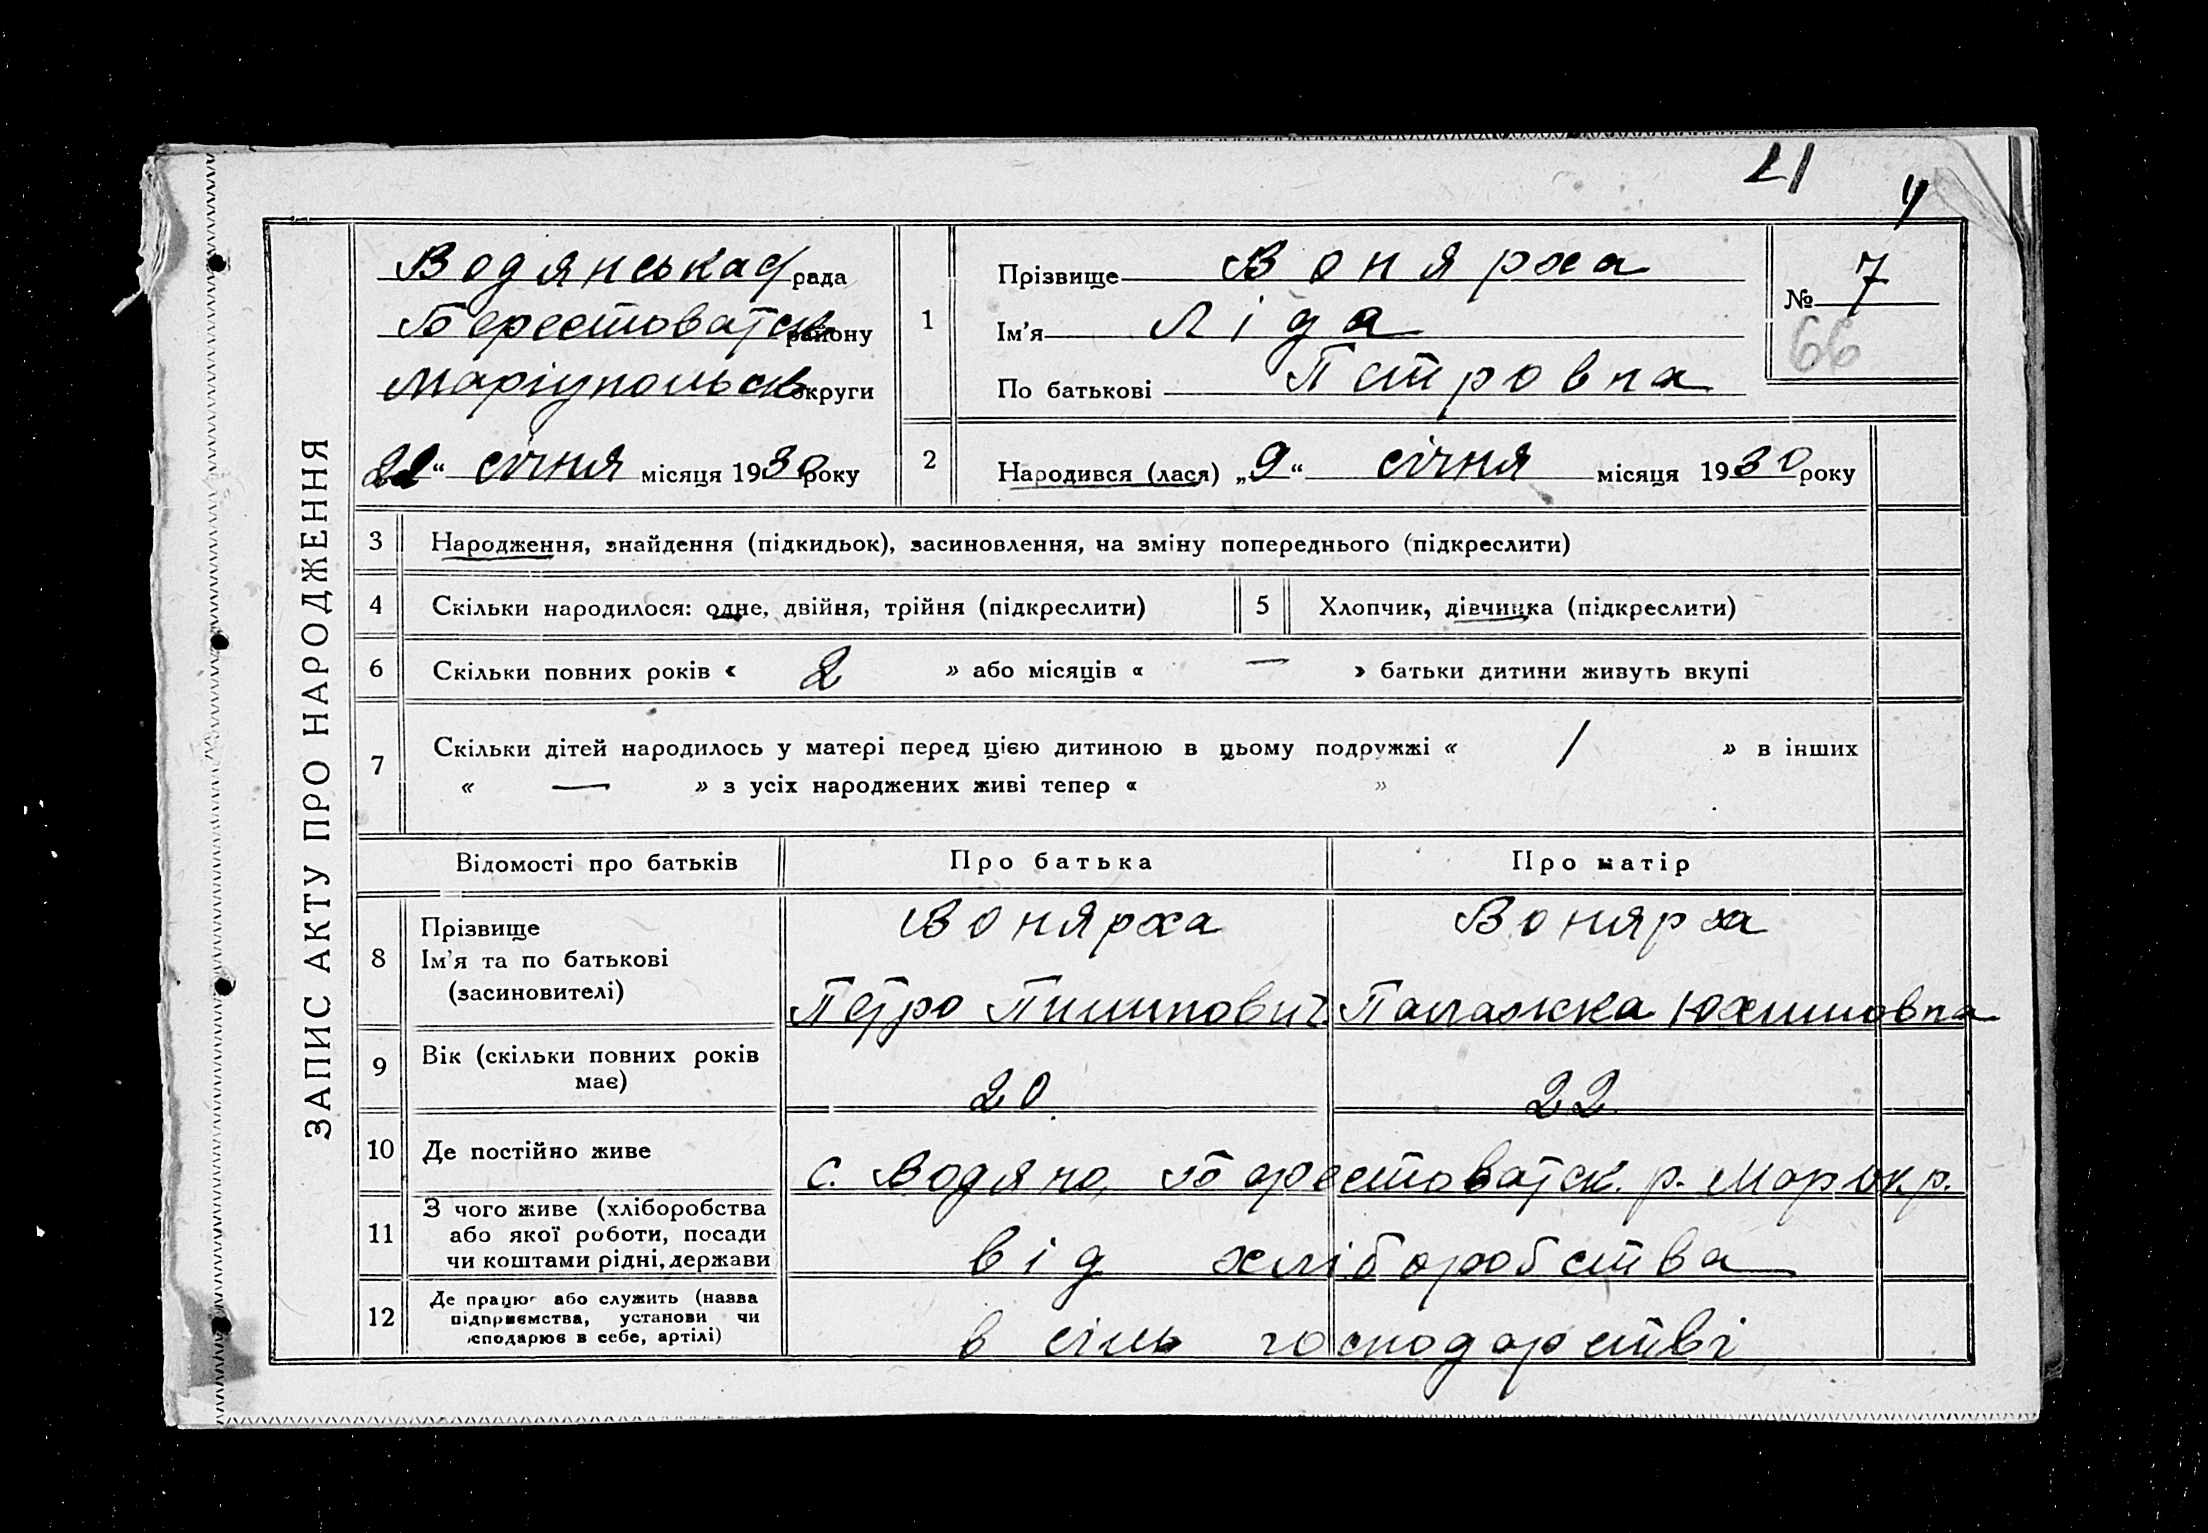 21
4
ЗАПИС АКТУ ПРО НАРОДЖЕННЯ
Водянська с/рада
Берестоватськ району
Маріупольськ округи
„22“ січня місяця 1930 року
1
Прізвище Вонярха
Ім'я Ліда
По батькові Петровна
№ 7
66
2
Народився (лася) „9“ січня місяця 1930 року
3 Народження, знайдення (підкидьок), засиновлення, на зміну попереднього (підкреслити)
4 Скільки народилося: одне, двійня, трійня (підкреслити) 5 Хлопчик, дівчинка (підкреслити)
6 Скільки повних років « 2 » або місяців « — » батьки дитини живуть вкупі
7 Скільки дітей народилось у матері перед цією дитиною в цьому подружжі « 1 » в інших
« — » з усіх народжених живі тепер « »
Відомості про батьків Про батька Про матір
8 Прізвище Вонярха Вонярха
Ім'я та по батькові
(засиновителі) Петро Пилипович Палажка Юхимовна
9 Вік (скільки повних років
має) 20. 22
10 Де постійно живе с. Водяно, Берестоватск. р. Мар окр.
11 З чого живе (хліборобства
або якої роботи, посади
чи коштами рідні, держави від хліборобства
12 Де працює або служить (назва
підприємства, установи чи
господарює в себе, артілі) в сільь господарстві